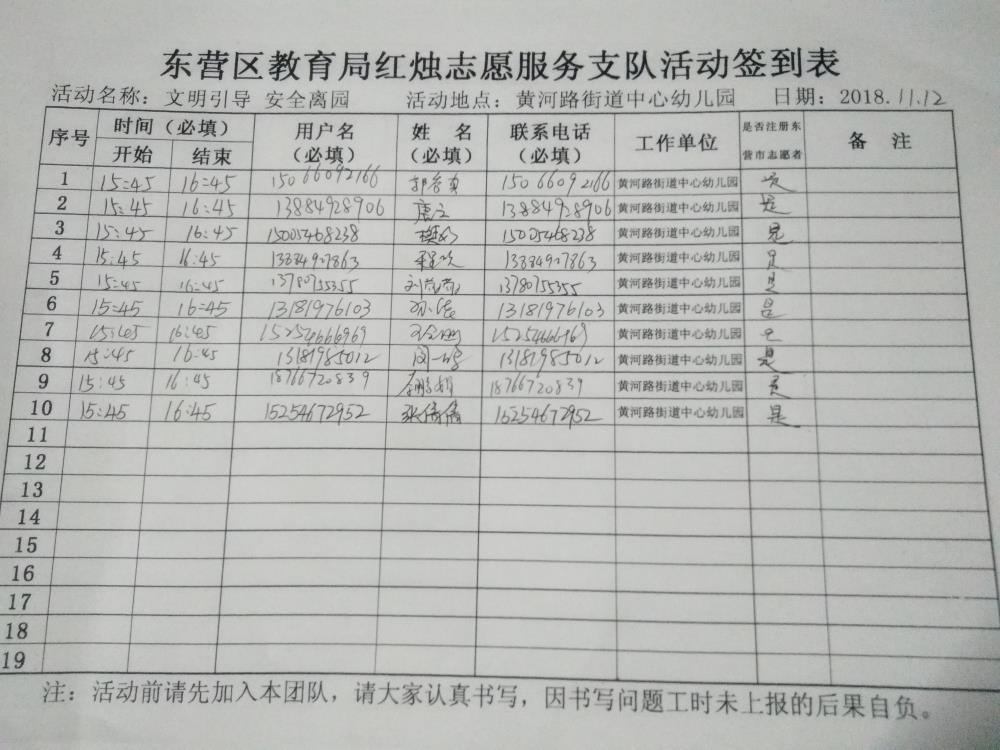 东营区教育局红烛志愿服务支队活动签到表
活动名称：文明引导 安全离园 活动地点：黄河路街道中心幼儿园 日期：2018.11.12
序号 时间（必填） 用户名（必填） 姓 名（必填） 联系电话（必填） 工作单位 是否注册东营市志愿者 备 注
开始 结束
1 15:45 16:45 15066092166 15066092166 黄河路街道中心幼儿园 是
2 15:45 16:45 13884928906 唐立 13884928906 黄河路街道中心幼儿园 是
3 15:45 16:45 15005468238 15005468238 黄河路街道中心幼儿园 是
4 15:45 16:45 13884927863 13884927863 黄河路街道中心幼儿园 是
5 15:45 16:45 13780755355 13780755355 黄河路街道中心幼儿园 是
6 15:45 16:45 13181976103 13181976103 黄河路街道中心幼儿园 是
7 15:45 16:45 15254666969 15254666969 黄河路街道中心幼儿园
8 15:45 16:45 13181985012 13181985012 黄河路街道中心幼儿园 是
9 15:45 16:45 18766720839 18766720839 黄河路街道中心幼儿园 是
10 15:45 16:45 15254672952 张倩倩 15254672952 黄河路街道中心幼儿园 是
11
12
13
14
15
16
17
18
19
注：活动前请先加入本团队，请大家认真书写，因书写问题工时未上报的后果自负。